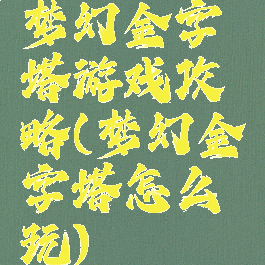 梦幻金字
塔游戏攻
略(梦幻金
字塔怎么
玩)